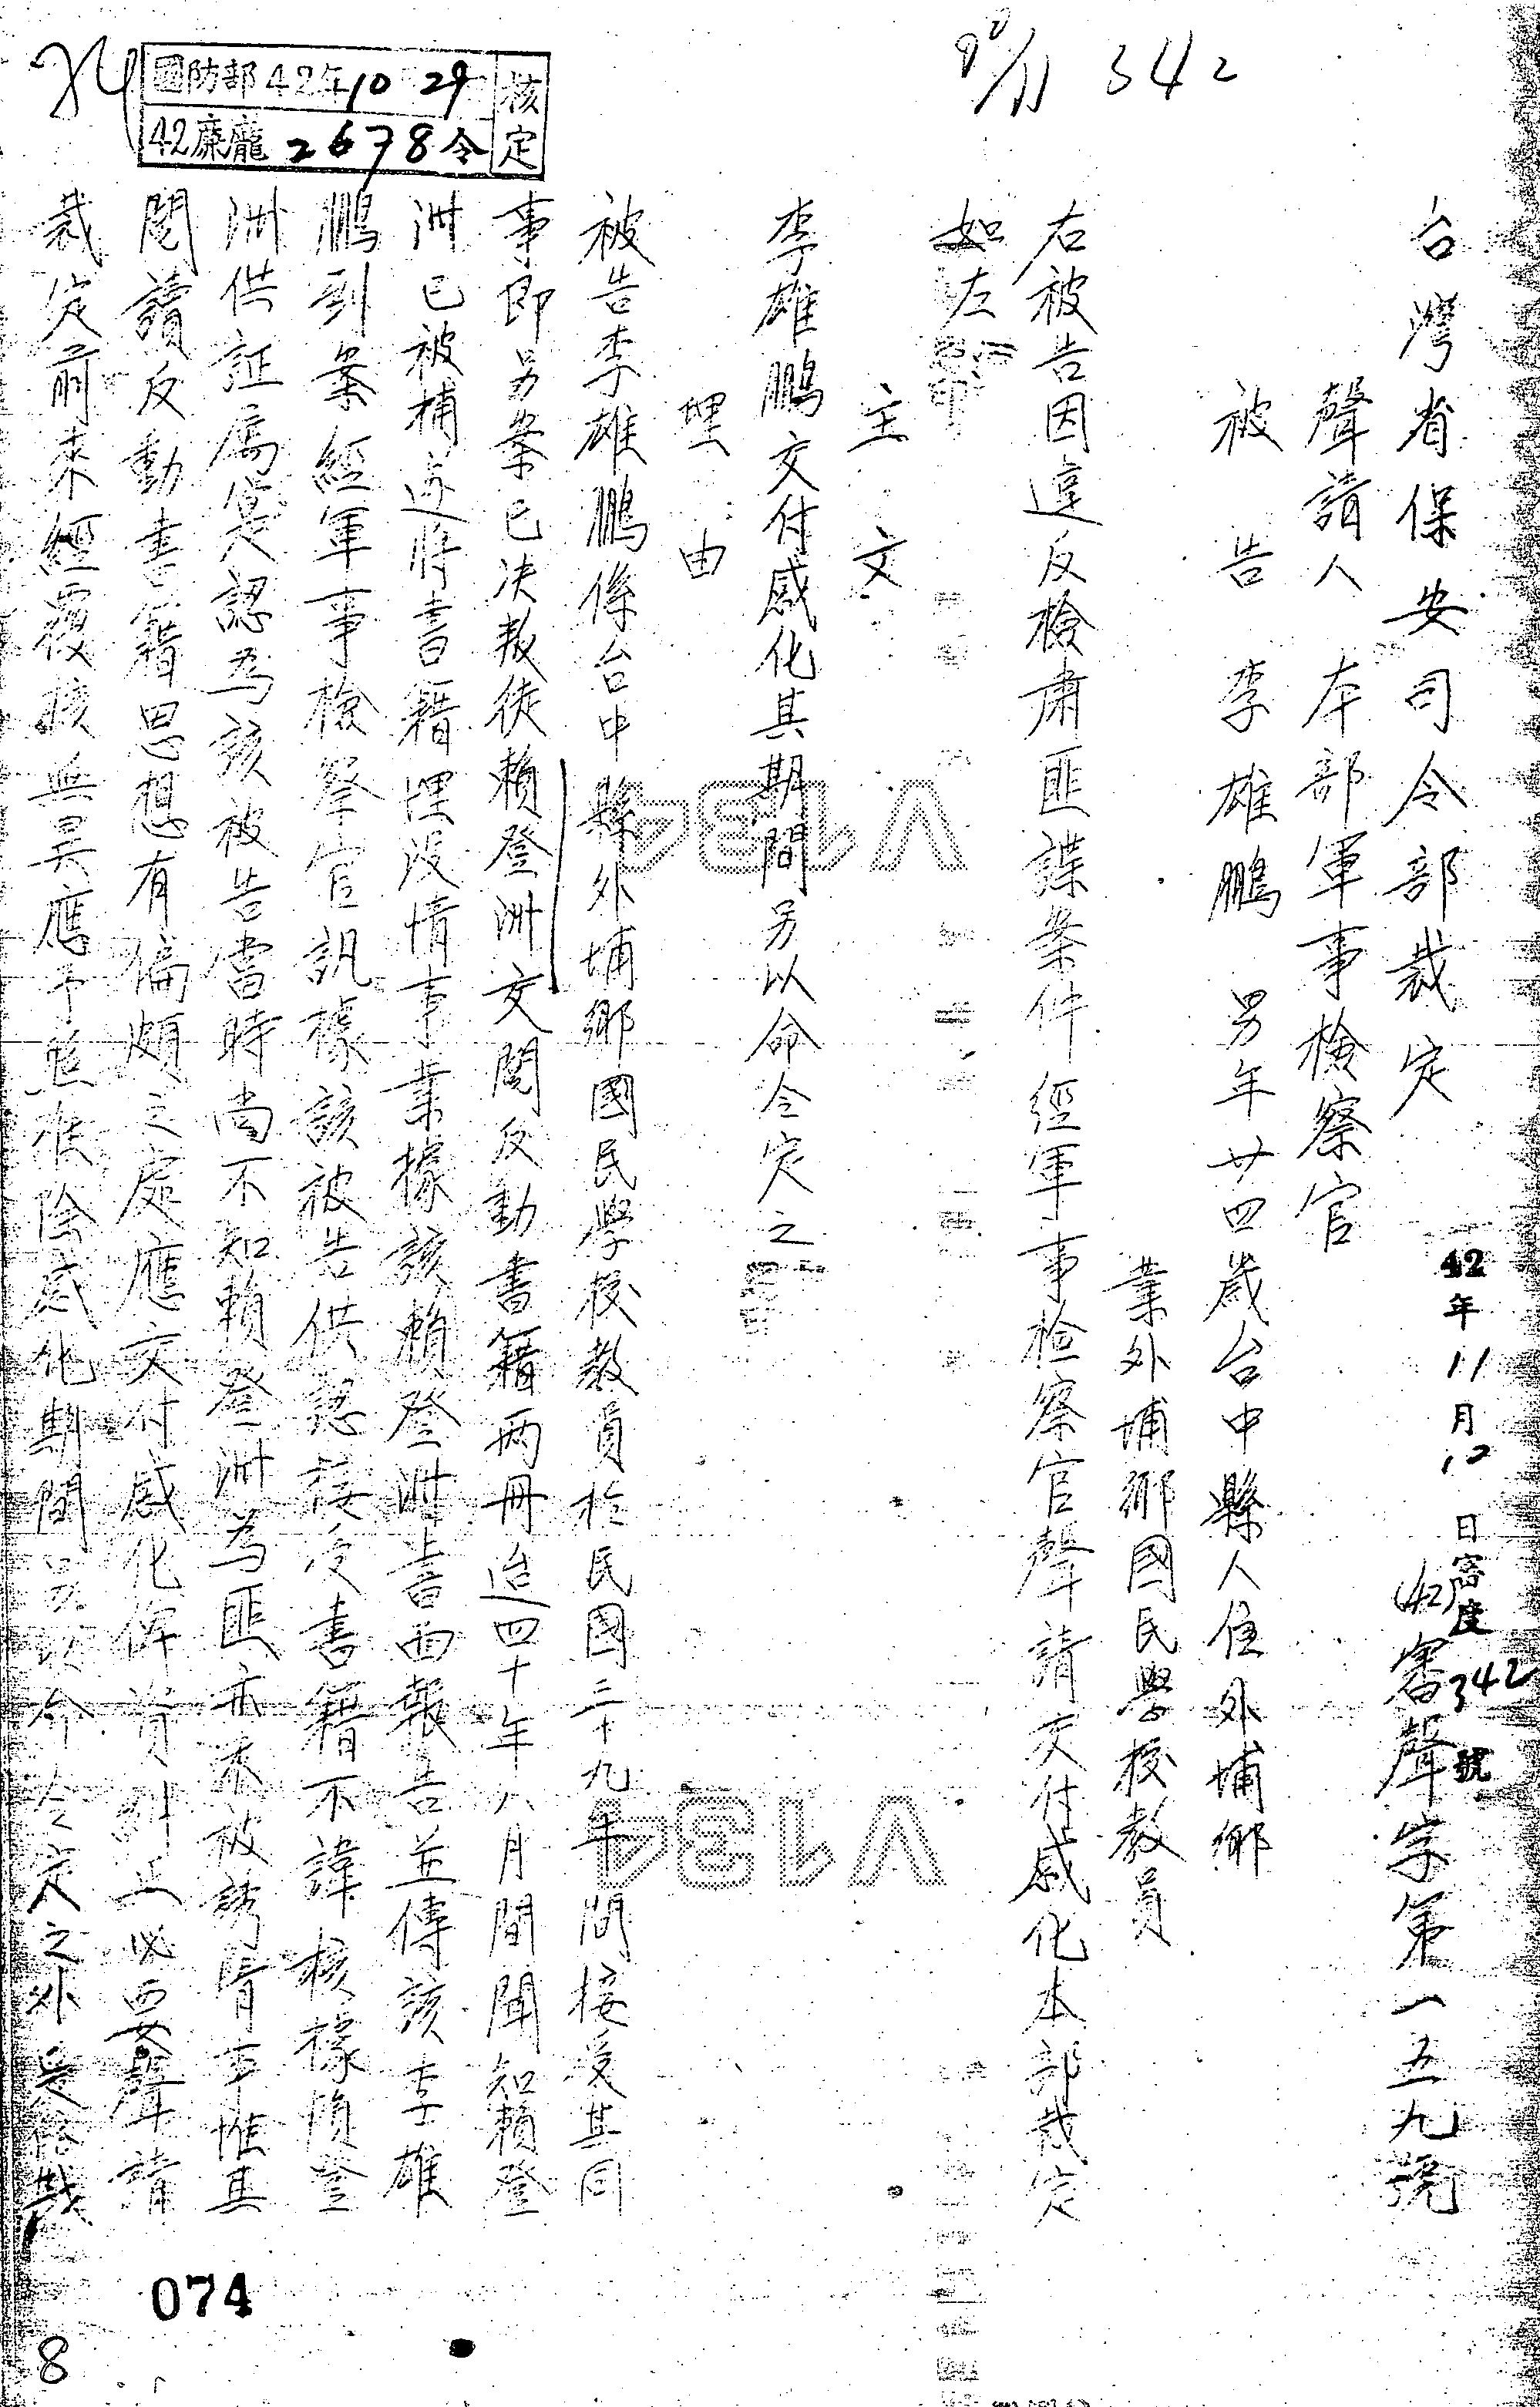 342
國防部42年10 29
42糜龐2678令
核定
台灣省保安司令部裁定
42年11月12日審度342號
(42)審聲字第一五九號
聲請人 本部軍事檢察官
被告 李雄鵬 男年廿四歲台中縣人住外埔鄉
業外埔鄉國民學校教員
右被告因違反檢肅匪諜案件經軍事檢察官聲請交付感化本部裁定
如左
主文
李雄鵬交付感化其期間另以命令定之
理由
被告李雄鵬係台中縣外埔鄉國民學校教員於民國三十九年間接受其同
事即另案已决叛徒賴登洲交閱反動書籍两冊迨四十年八月間聞知賴登
洲已被捕遂將書籍埋没情事業據該賴登洲書面報告並傳該李雄
鵬到案經軍事檢察官訊據該被告供認接受書籍不諱核據賴登
洲供証属實認為該被告當時尚不知賴登洲為匪亦未被誘情事惟其
閱讀反動書籍思想有偏頗之處應交付感化俾資糾正必要聲請
裁定前来經覆核無異應予照准除感化期間另以命令定之外爰裁
074
8
V134
V134